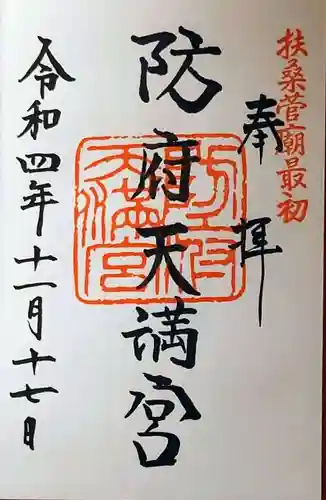 扶桑菅廟最初
奉拝
防府天満宮
防府天満宮
令和四年十一月十七日